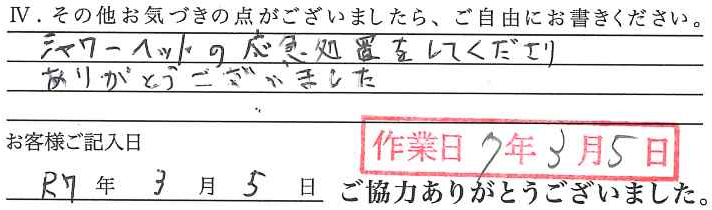 Ⅳ．その他お気づきの点がございましたら、ご自由にお書きください。
シャワーヘッドの応急処置をしてくださり
ありがとうございました
お客様ご記入日
作業日 7年3月5日
R7年3月5日 ご協力ありがとうございました。